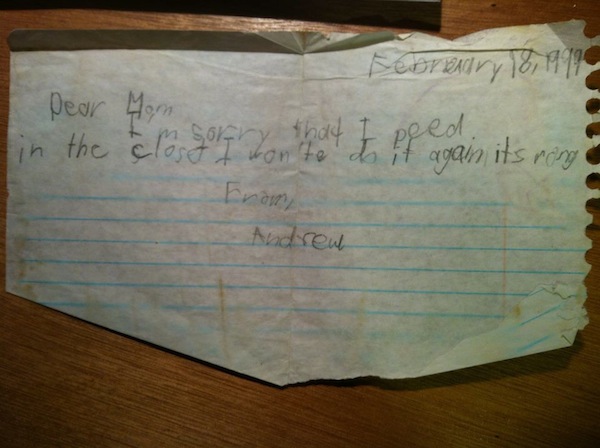 February 18, 1999
Dear Mom
I'm sorry that I peed
in the closet I won'te do it again its rong
From,
Andrew